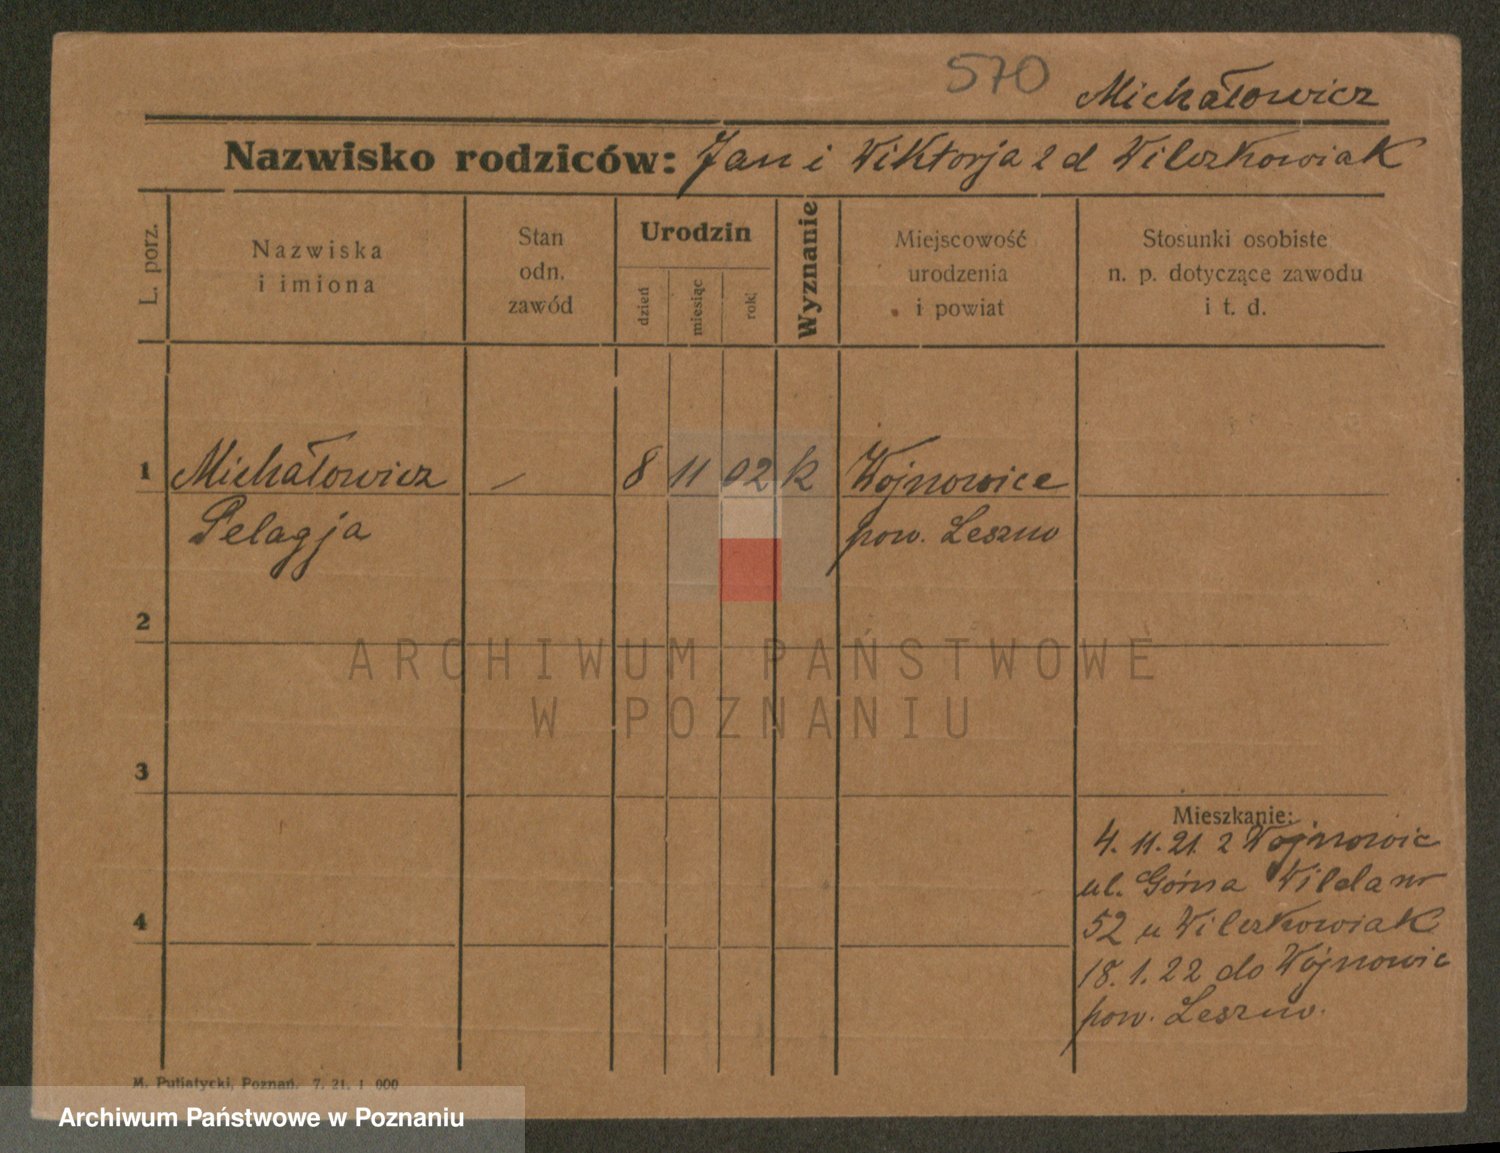 570
Michałowicz
Nazwisko rodziców: Jan i Wiktorja z d Wilczkowiak
L. porz.
Nazwiska
i imiona
Stan
odn.
zawód
Urodzin
dzień
miesiąc
rok
Wyznanie
Miejscowość
urodzenia
i powiat
Stosunki osobiste
n. p. dotyczące zawodu
i t. d.
1 Michałowicz — 8 11 02 k Wojnowice
Pelagja pow. Leszno
2
ARCHIWUM PAŃSTWOWE
W POZNANIU
3
Mieszkanie:
4. 11. 21 z Wojnowic
ul. Górna Wilda nr
4
52 u Wilczkowiak
18. 1. 22 do Wojnowic
pow. Leszno.
M. Putiatycki, Poznań. 7. 21. 1 000
Archiwum Państwowe w Poznaniu